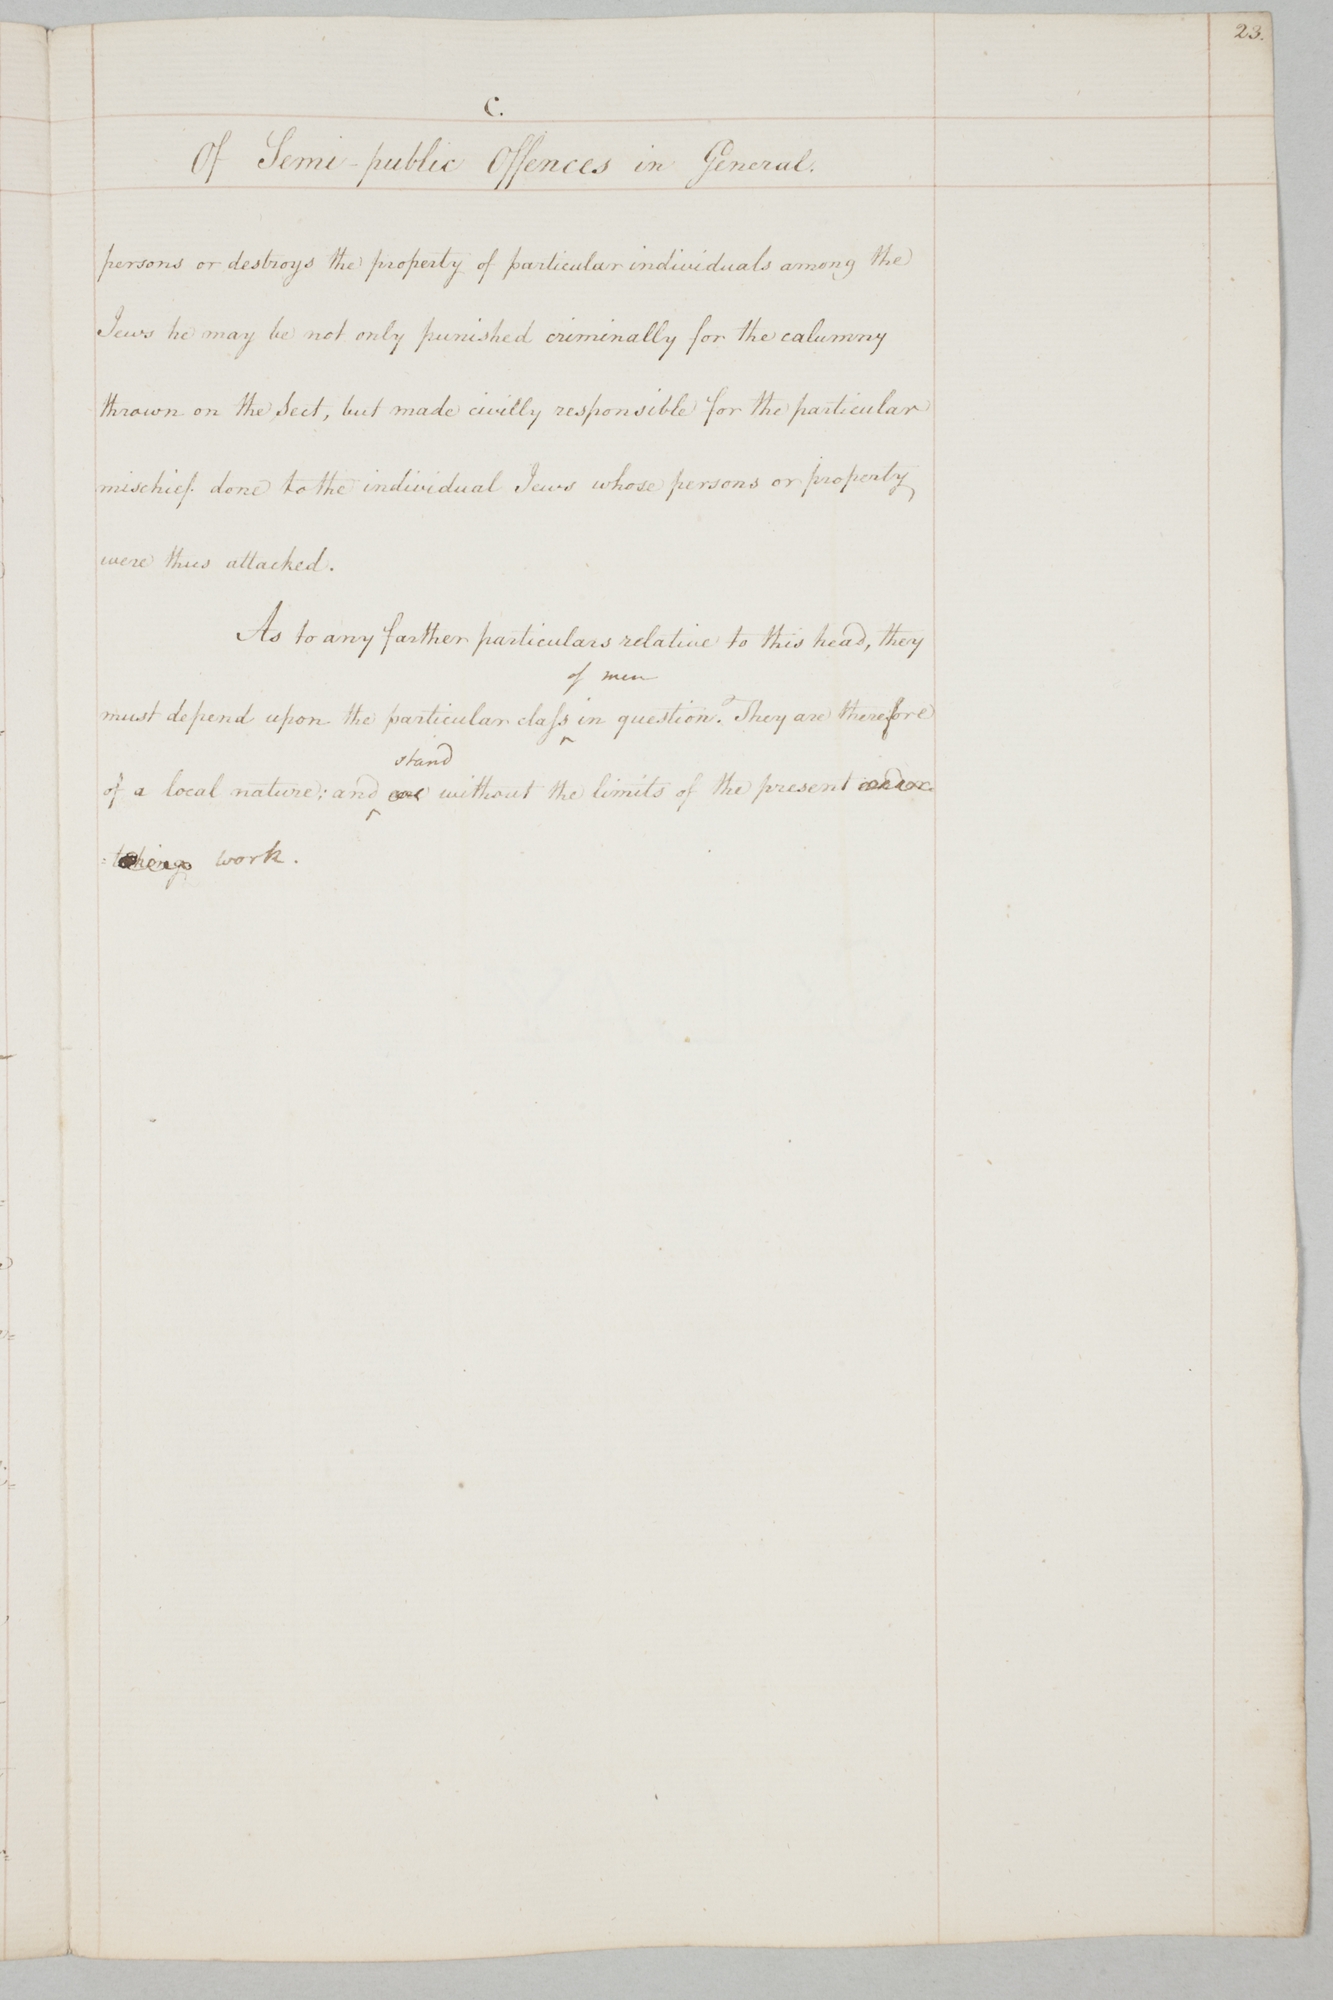 23.
C.
Of Semi-public Offences in General.
persons or destroys the property of particular individuals among the
Jews he may be not only punished criminally for the calumny
thrown on the Sect, but made civilly responsible for the particular
mischief done to the individual Jews whose persons or property
were thus attacked.
As to any farther particulars relative to this head, they
of men
must depend upon the particular class in question. They are therefore
stand
of a local nature; and are without the limits of the present under
=taking work.